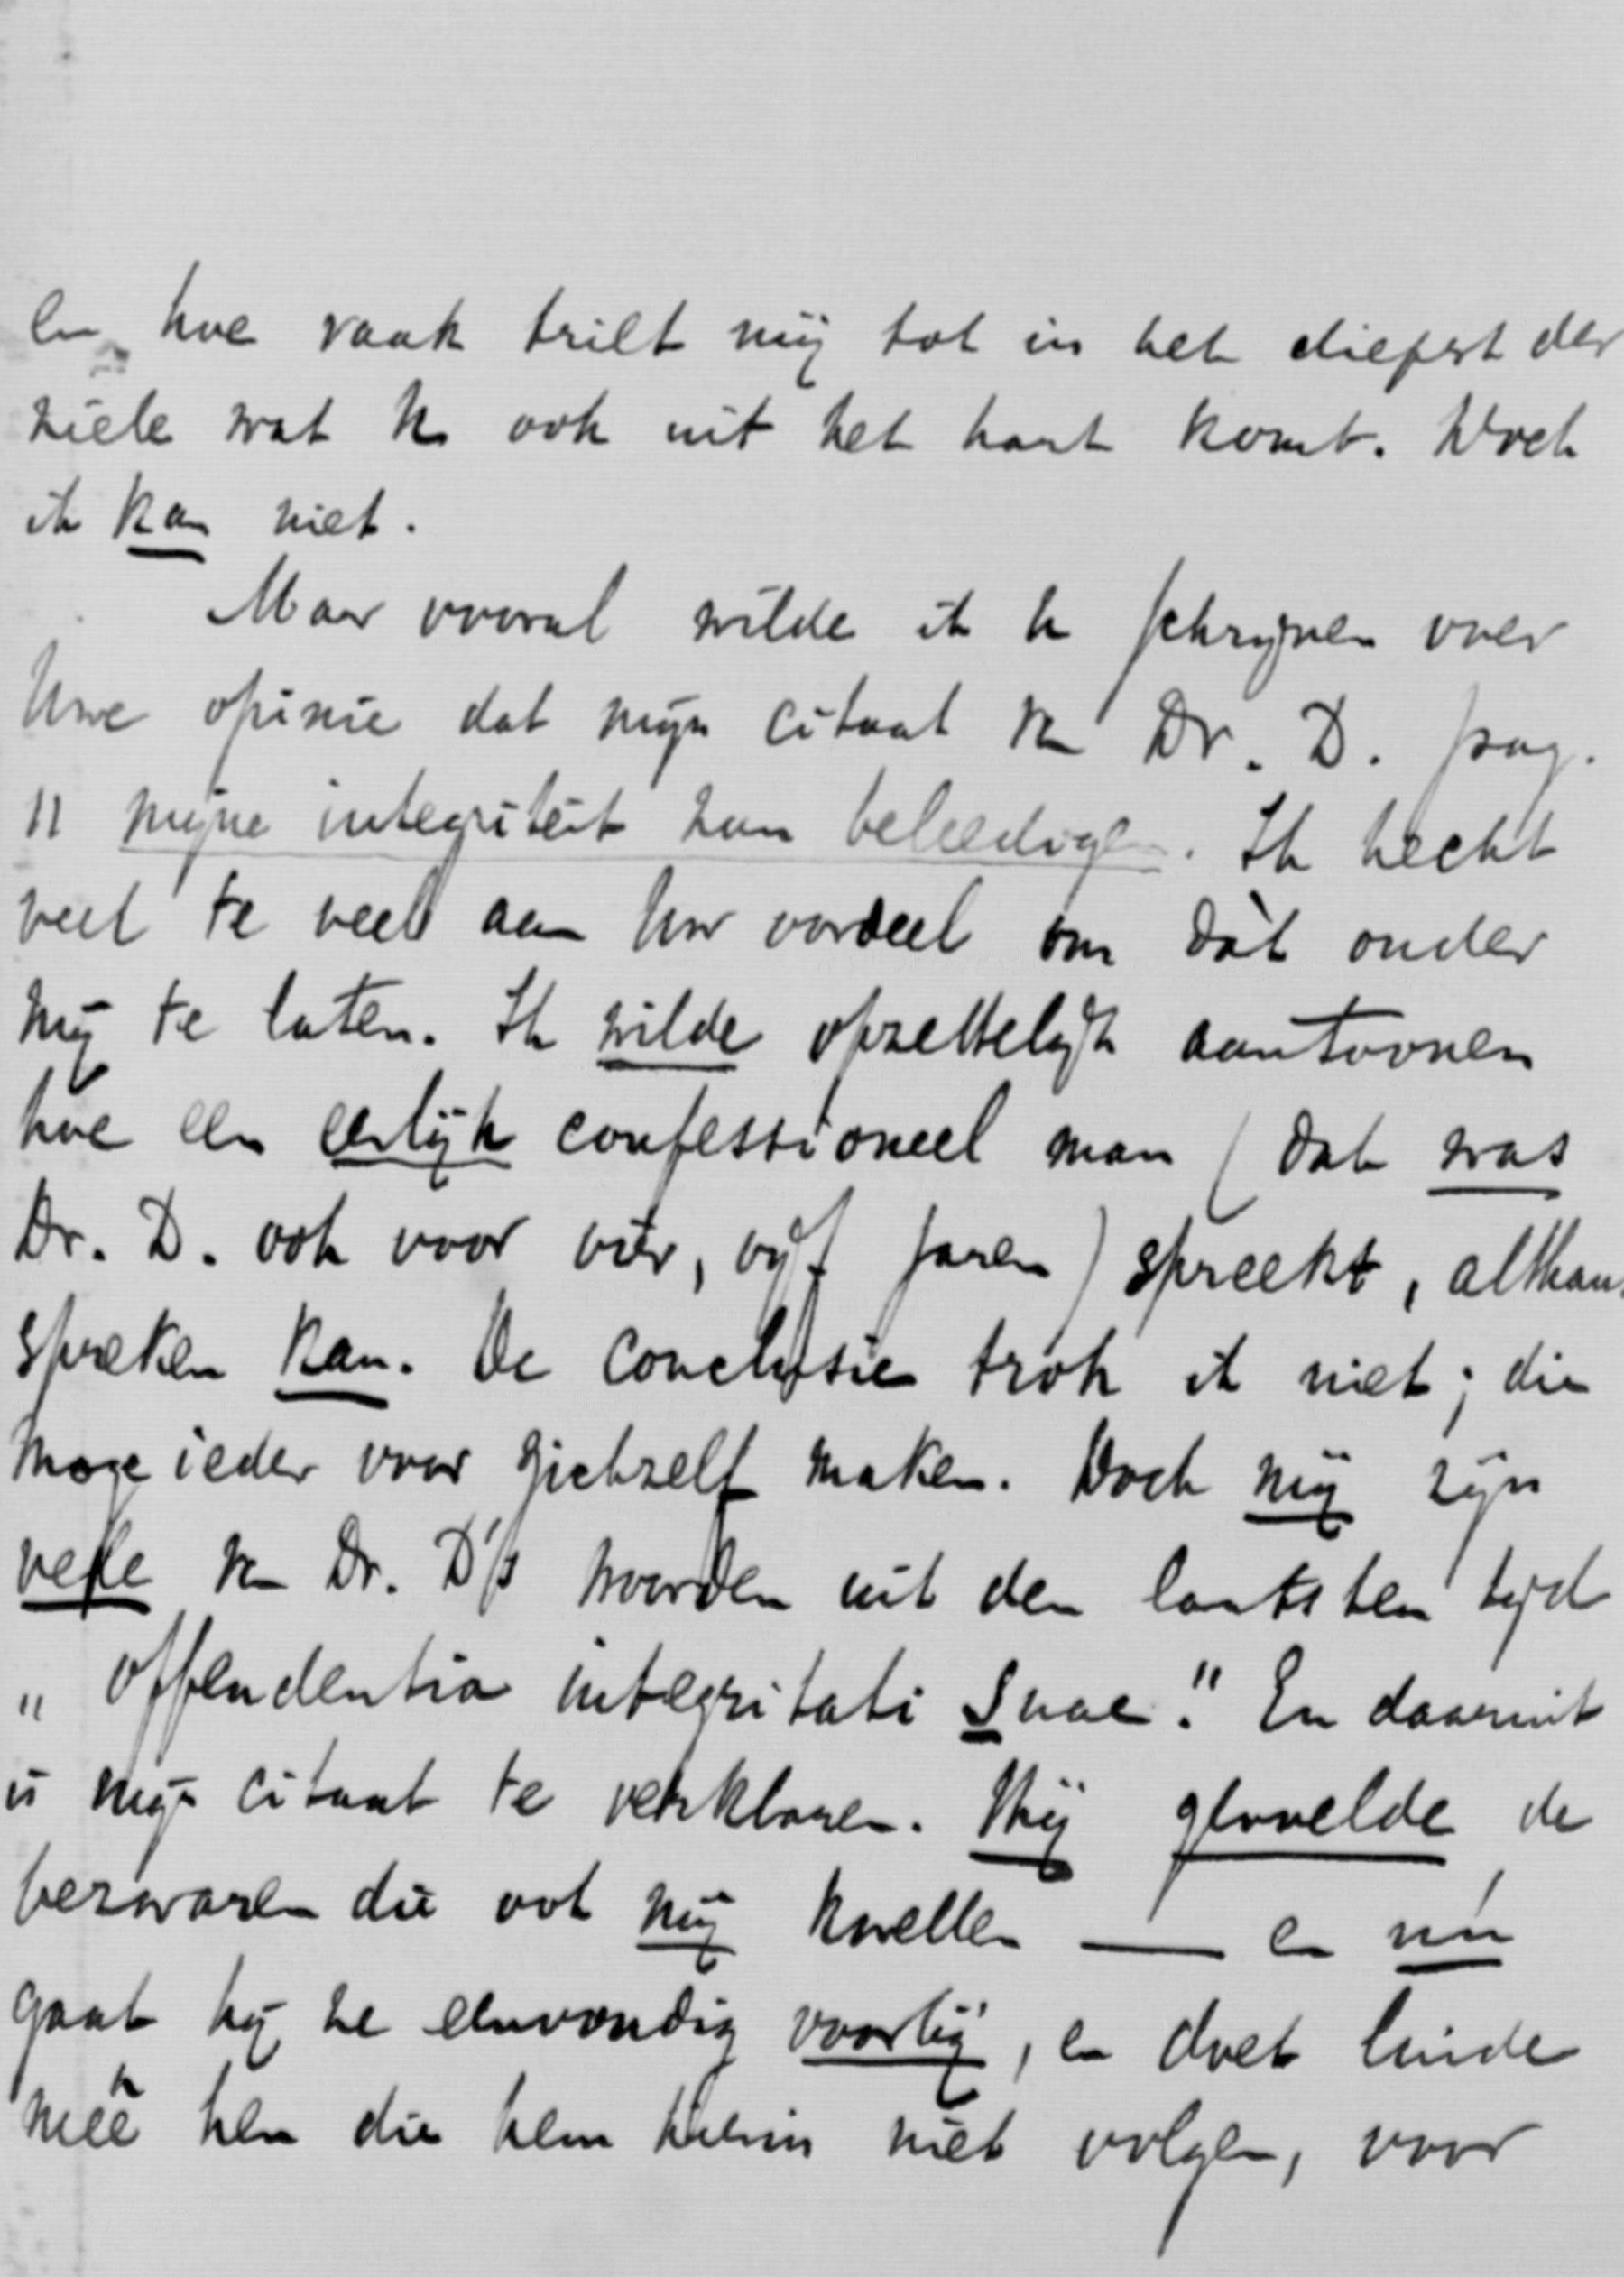 En hoe vaak trilt mij tot in het diepst der
ziele wat U ook uit het hart komt. Doch
ik kan niet.
Maar vooral wilde ik U schrijven over
Uwe opinie dat mijn citaat v. Dr. D. pag.
11 mijne integriteit kan beleedigen. Ik hecht
veel te veel aan Uw oordeel om dàt onder
mij te laten. Ik wilde opzettelijk aantoonen
hoe een eerlijk confessioneel man (dat was
Dr. D. ook voor vier, vijf jaren) spreekt, althans
spreken kan. De conclusie trok ik niet; die
moge ieder voor zichzelf maken. Doch mij zijn
vele v. Dr. D's woorden uit den laatsten tijd
„offendentia integritati suae." En daaruit
is mijn citaat te verklaren. Hij gevoelde de
bezwaren die ook mij kwellen — en nú
gaat hij ze eenvoudig voorbij, en doet einde
meê hen die hem hierin niet volgen, voor